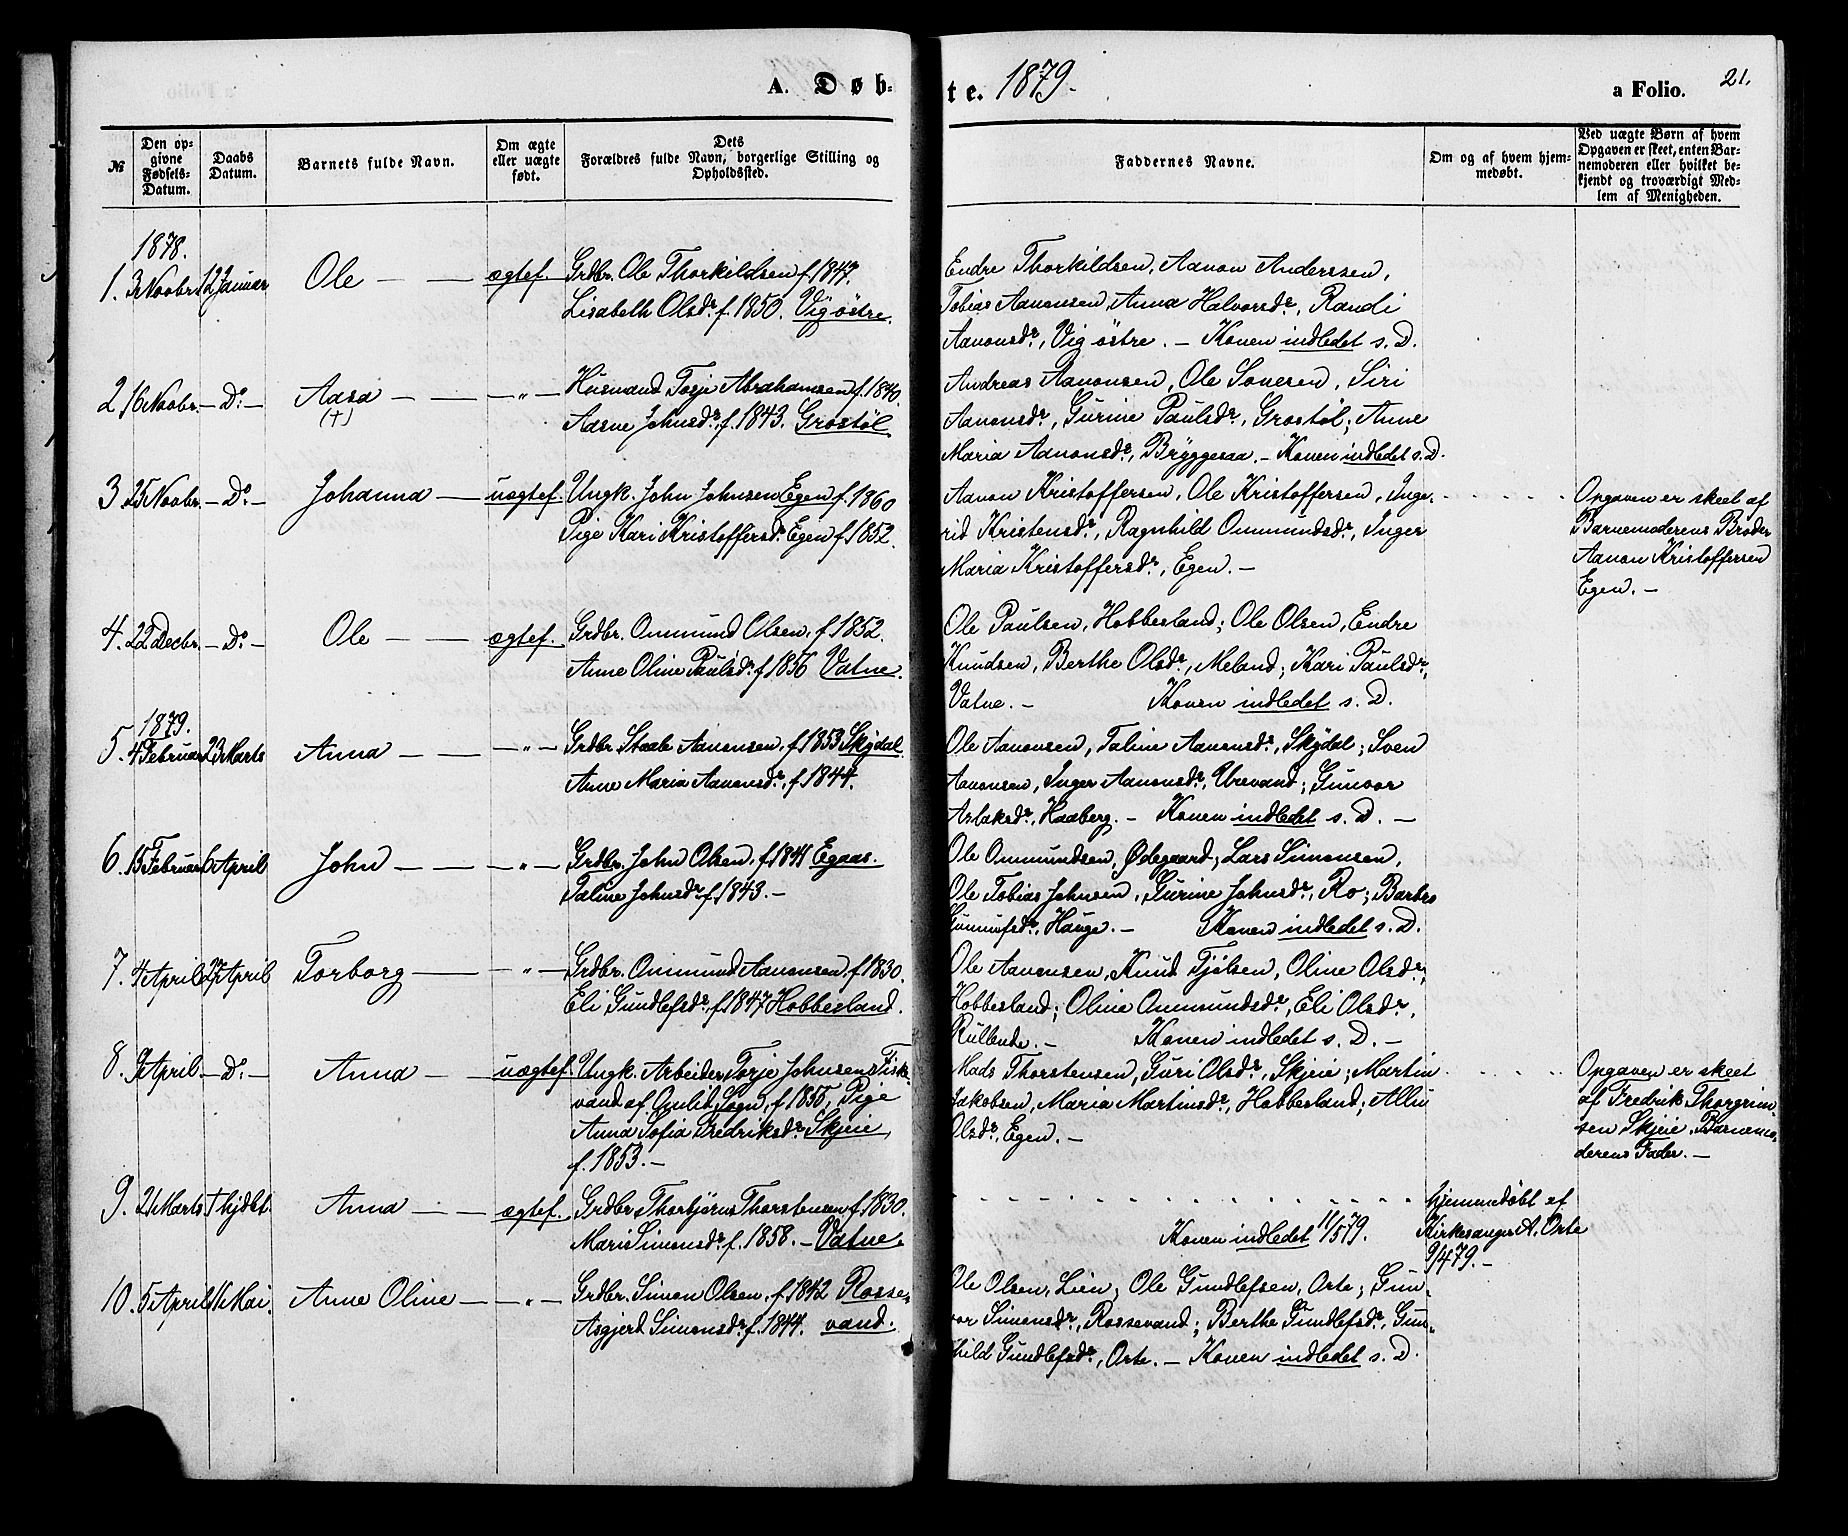 A. Døb-
te. 1879.
a Folio. 21.
№
Den op-
givne
Fødsels-
Datum.
Daabs
Datum.
Barnets fulde Navn.
Om ægte
eller uægte
født.
Dets
Forældres fulde Navn, borgerlige Stilling og
Opholdssted.
Faddernes Navne.
Om og af hvem hjem-
medøbt.
Ved uægte Børn af hvem
Opgaven er skeet, enten Bar-
nemoderen eller hvilket be-
kjendt og troværdigt Med-
lem af Menigheden.
1878.
1. 3 Novbr. 12 Januar Ole — — ægtef. Grdbr. Ole Thorkildsen f. 1847.
Lisabeth Olsdr. f. 1850. Vig østre.
Endre Thorkildsen, Aanon Anderssen,
Tobias Aanonsen, Anna Halvorsdr., Randi
Aanonsdr., Vig østre. — Konen indledet s. D.
2 16 Novbr. — Do. — Aasa — — „ — Husmand Torje Abrahamsen f. 1840.
(†)
Aasne Johnsdr. f. 1843. Grostøl.
Andreas Aanonsen, Ole Sonesen, Siri
Aanonsdr., Gurine Paulsdr., Grostøl; Anne
Maria Aanonsdr., Bryggesaa. — Konen indledet s. D.
3 25 Novbr. — Do. — Johanna — uægtef. Ungk. John Johnsen Egen f. 1860
Pige Kari Kristoffersdr. Egen f. 1852.
Aanon Kristoffersen, Ole Kristoffersen, Inge-
rid Kristensdr., Ragnhild Ommundsdr., Inger
Maria Kristoffersdr., Egen. —
Opgaven er skeet af
Barnemoderens Broder
Aanon Kristoffersen
Egen. —
4. 22 Decbr. — Do. — Ole — — ægtef. Grdbr. Ommund Olsen, f. 1852.
Anne Oline Paulsdr. f. 1856 Vatne.
Ole Paulsen, Hobbesland; Ole Olsen, Endre
Knudsen, Berthe Olsdr., Meland; Kari Paulsdr.,
Vatne. — Konen indledet s. D.
1879.
5. 4 Februar 23 Marts Anna — — „ — Grdbr. Staale Aanonsen, f. 1853 Skydal
Anne Maria Aanonsdr., f. 1844.
Ole Aanonsen, Taline Aanonsdr., Skydal; Sven
Aanonsen, Inger Aanonsdr., Urevand; Gunvor
Aslaksdr., Haaberg. — Konen indledet s. D. —
6. 15 Februar 6 April John — — „ — Grdbr. John Olsen, f. 1844 Egaas.
Taline Johnsdr. f. 1843. —
Ole Ommundsen, Ødegaard; Lars Simonsen,
Ole Tobias Johnsen, Gurine Johnsdr., Ro; Barbro
Gunnufsdr., Hauge. — Konen indledet s. D.
7. 4 April 27 April Torborg — „ — Grdbr. Ommund Aanonsen, f. 1830.
Eli Gundlefsdr., f. 1847 Hobbesland.
Ole Aanonsen, Knud Tjølsen, Oline Olsdr.,
Hobbesland; Oline Ommundsdr., Eli Olsdr.,
Rullende. — Konen indledet s. D. —
8. 9 April — Do. — Anna — uægtef. Ungk. Arbeider, Torje Johnsen Fisk-
vand af Grulid Sogn, f. 1855, Pige
Anna Sofia Fredriksdr. Skjeie,
f. 1853. —
Mads Thorstensen, Guri Olsdr., Skjeie; Martin
Jakobsen, Maria Martinsdr., Hobbesland; Allu
Olsdr., Egen. —
Opgaven er skeet
af Fredrik Thorgrim-
sen Skjeie, Barnemo-
derens Fader. —
9. 21 Marts † hjdbt. Anna — — ægtef. Grdbr. Thorbjørn Thorstensen f. 1830.
Mari Simonsdr. f. 1858. — Vatne.
Konen indledet 11/5 79.
hjemmedøbt af
Kirkesanger A. Orte
9/4 79. —
10. 5 April 11 Mai. Anne Oline — „ — Grdbr. Simon Olsen, f. 1842 Rosse-
Asgjerd Simonsdr. f. 1844. vand.
Ole Olsen, Lien; Ole Gundlefsen, Orte; Gun-
vor Simonsdr., Rossevand; Berthe Gundlefsdr., Gun-
hild Gundlefsdr., Orte. — Konen indledet s. D.